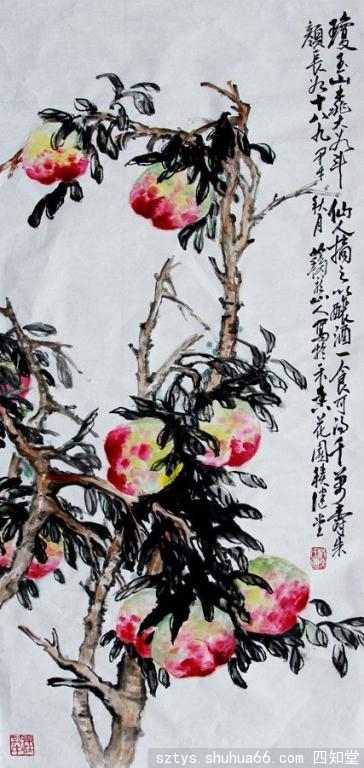 瓊玉山桃大如斗 仙人摘之以釀酒一食可得千萬壽朱
顏長如十八九 甲午秋月 山人寫於 花園
sztys.shuhua66.com 四知堂